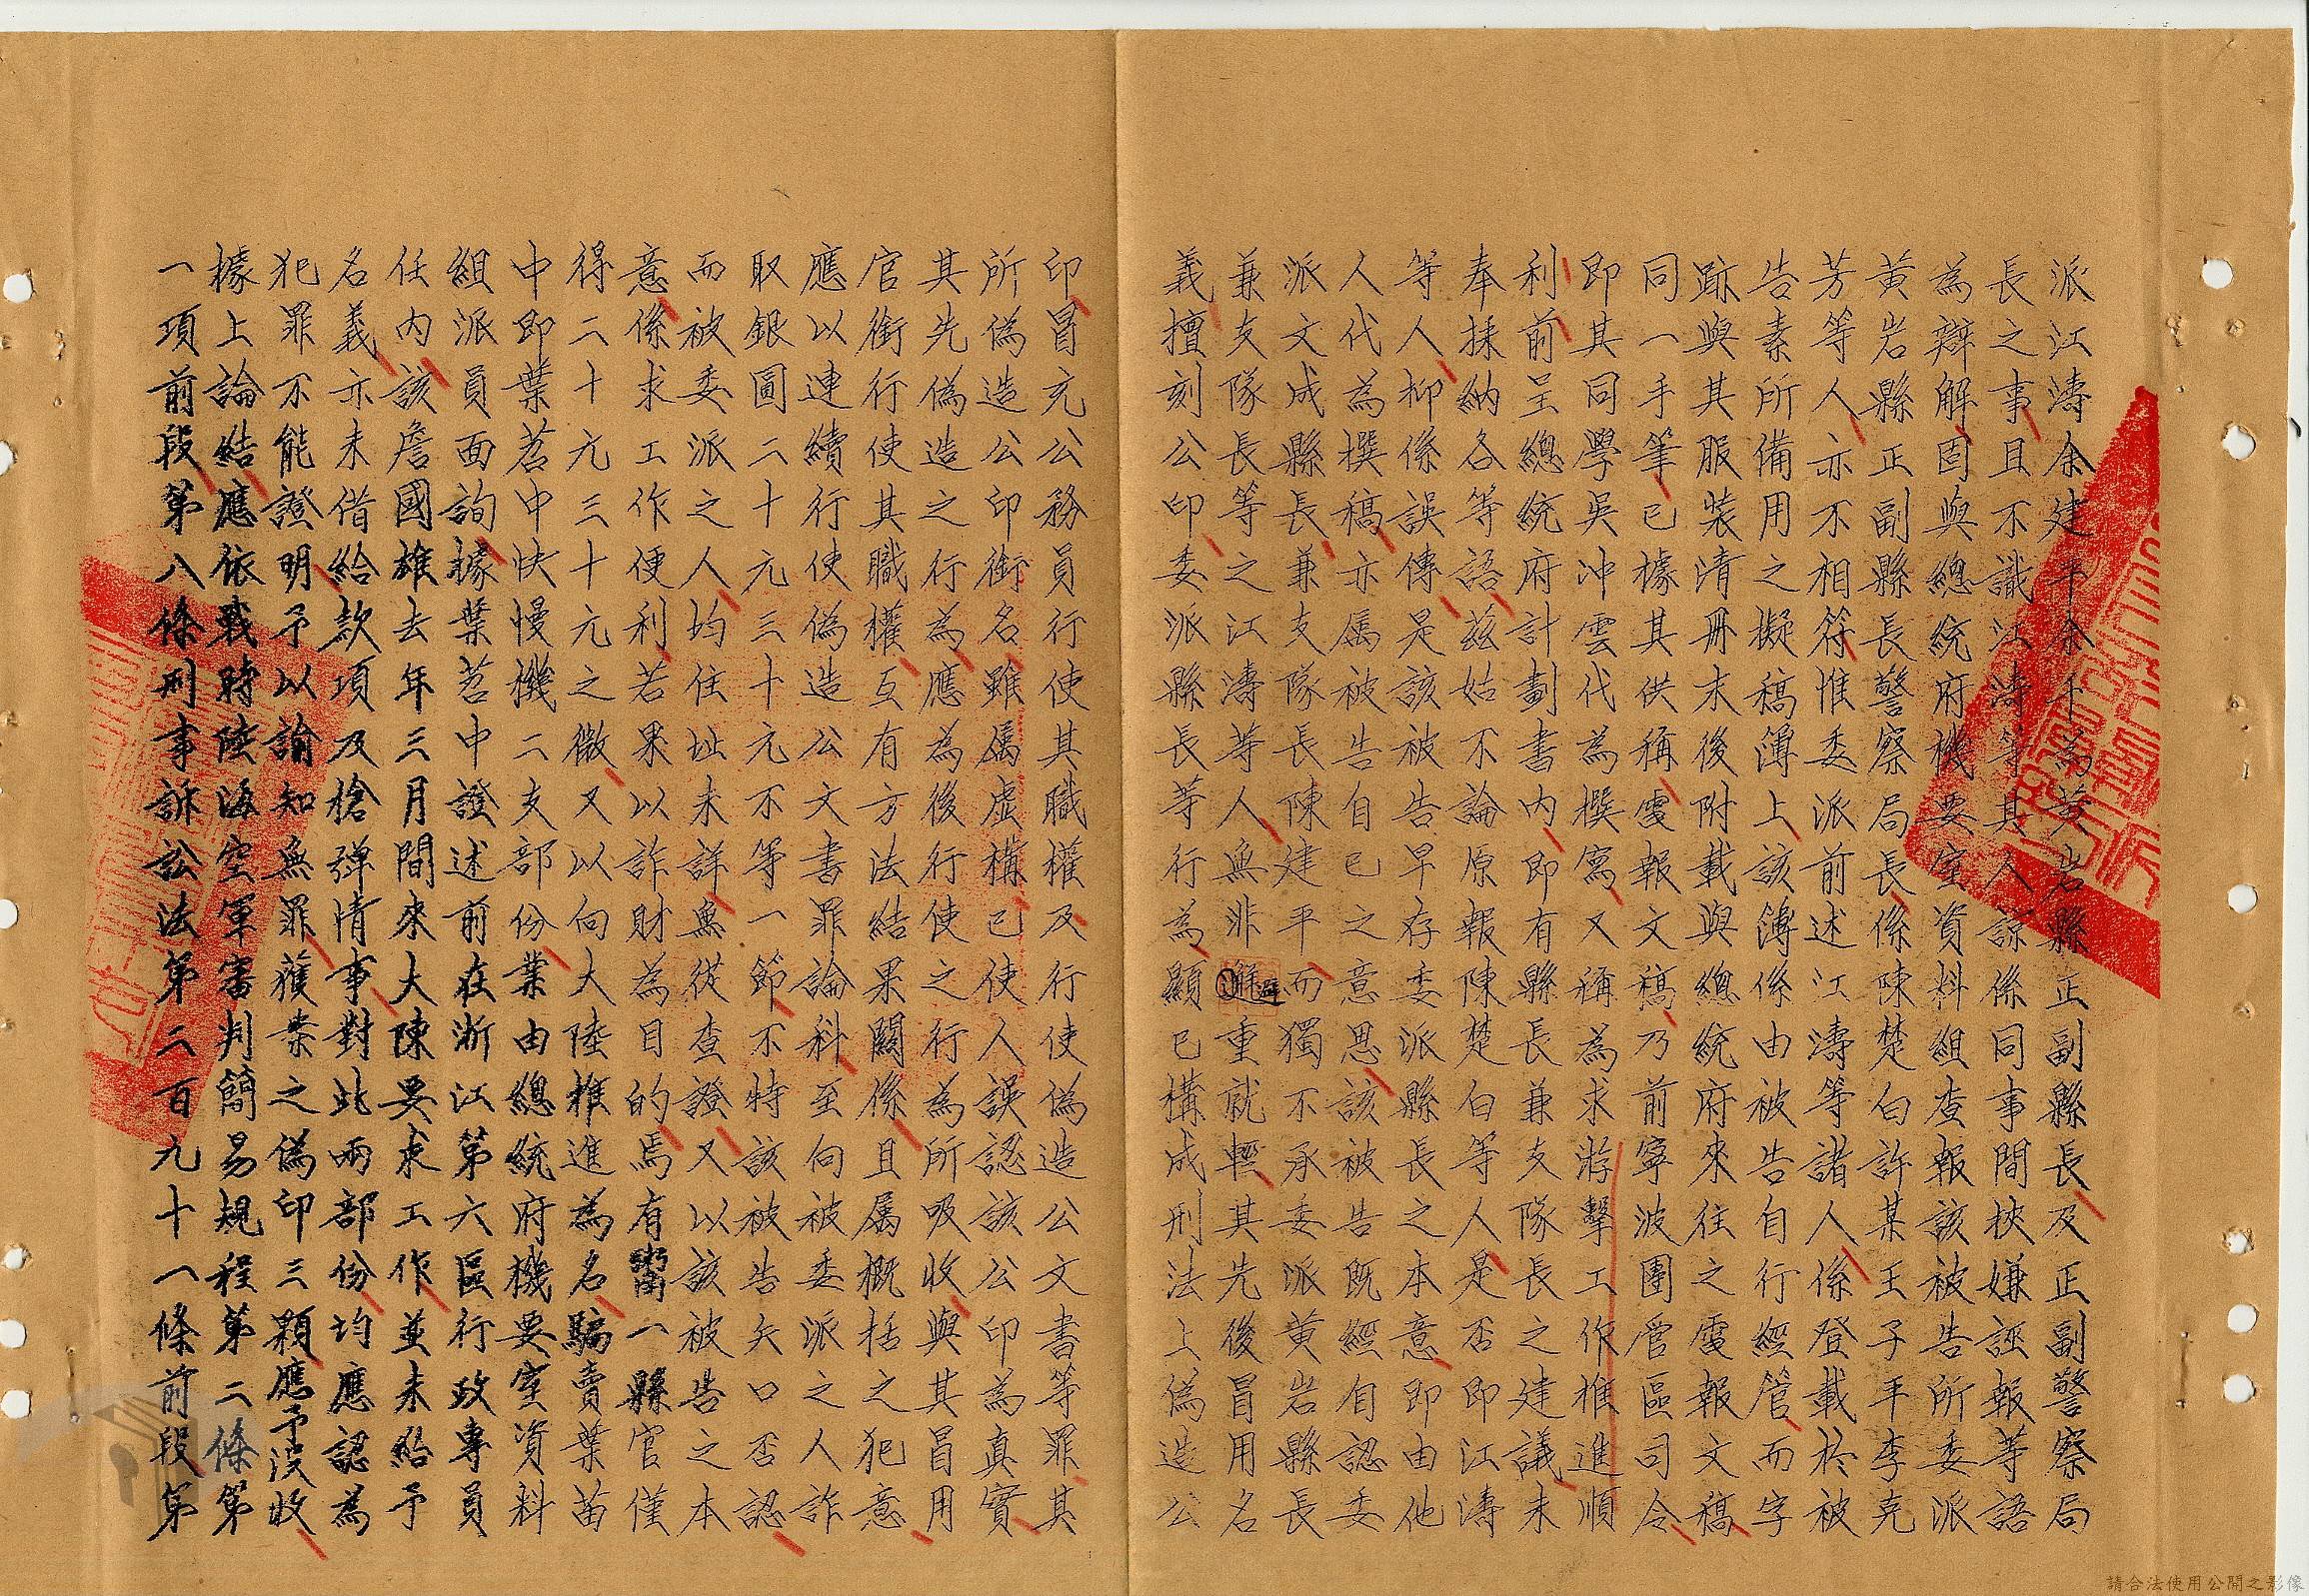 派江濤余建平余下為黃岩縣正副縣長及正副警察局
長之事且不識江濤等其人諒係同事間挾嫌誣報等語
為辯解固與總統府機要室資料組查報該被告所委派
黃岩縣正副縣長警察局長係陳楚白許某王子平李克
芳等人亦不相符惟委派前述江濤等諸人係登載於被
告素所備用之擬稿簿上該簿係由被告自行經管而字
跡與其服裝清冊末後附載與總統府來往之電報文稿
同一手筆已據其供稱電報文稿乃前寧波團管區司令
即其同學吳沖雲代為撰寫又稱為求游擊工作推進順
利前呈總統府計劃書內即有縣長兼支隊長之建議未
奉採納各等語茲姑不論原報陳楚白等人是否即江濤
等人抑係誤傳是該被告早存委派縣長之本意即由他
人代為撰稿亦屬被告自己之意思該被告既經自認委
派文成縣長兼支隊長陳建平而獨不承委派黃岩縣長
兼支隊長等之江濤等人無非避重就輕其先後冒用名
義擅刻公印委派縣長等行為顯已構成刑法上偽造公
印冒充公務員行使其職權及行使偽造公文書等罪其
所偽造公印銜名雖屬虛構已使人誤認該公印為真實
其先偽造之行為應為後行使之行為所吸收與其冒用
官銜行使其職權互有方法結果關係且屬概括之犯意
應以連續行使偽造公文書罪論科至向被委派之人詐
取銀圓二十元三十元不等一節不特該被告矢口否認
而被委派之人均住址未詳無從查證又以該被告之本
意係求工作便利若果以詐財為目的焉有鬻一縣官僅
得二十元三十元之微又以向大陸推進為名騙賣葉苗
中即葉茗中快慢機二支部份業由總統府機要室資料
組派員面詢據葉茗中證述前在浙江第六區行政專員
任內該詹國雄去年三月間來大陳要求工作並未給予
名義亦未借給款項及槍彈情事對此兩部份均應認為
犯罪不能證明予以諭知無罪獲案之偽印三顆應予沒收
據上論結應依戰時陸海空軍審判簡易規程第二條第
一項前段第八條刑事訴訟法第二百九十一條前段第
請合法使用公開之影像